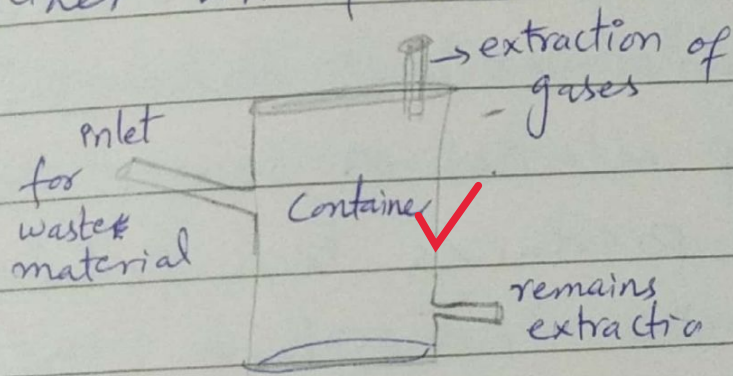 extraction of
gases
Inlet
for
waste
material
Container
remains
extractio